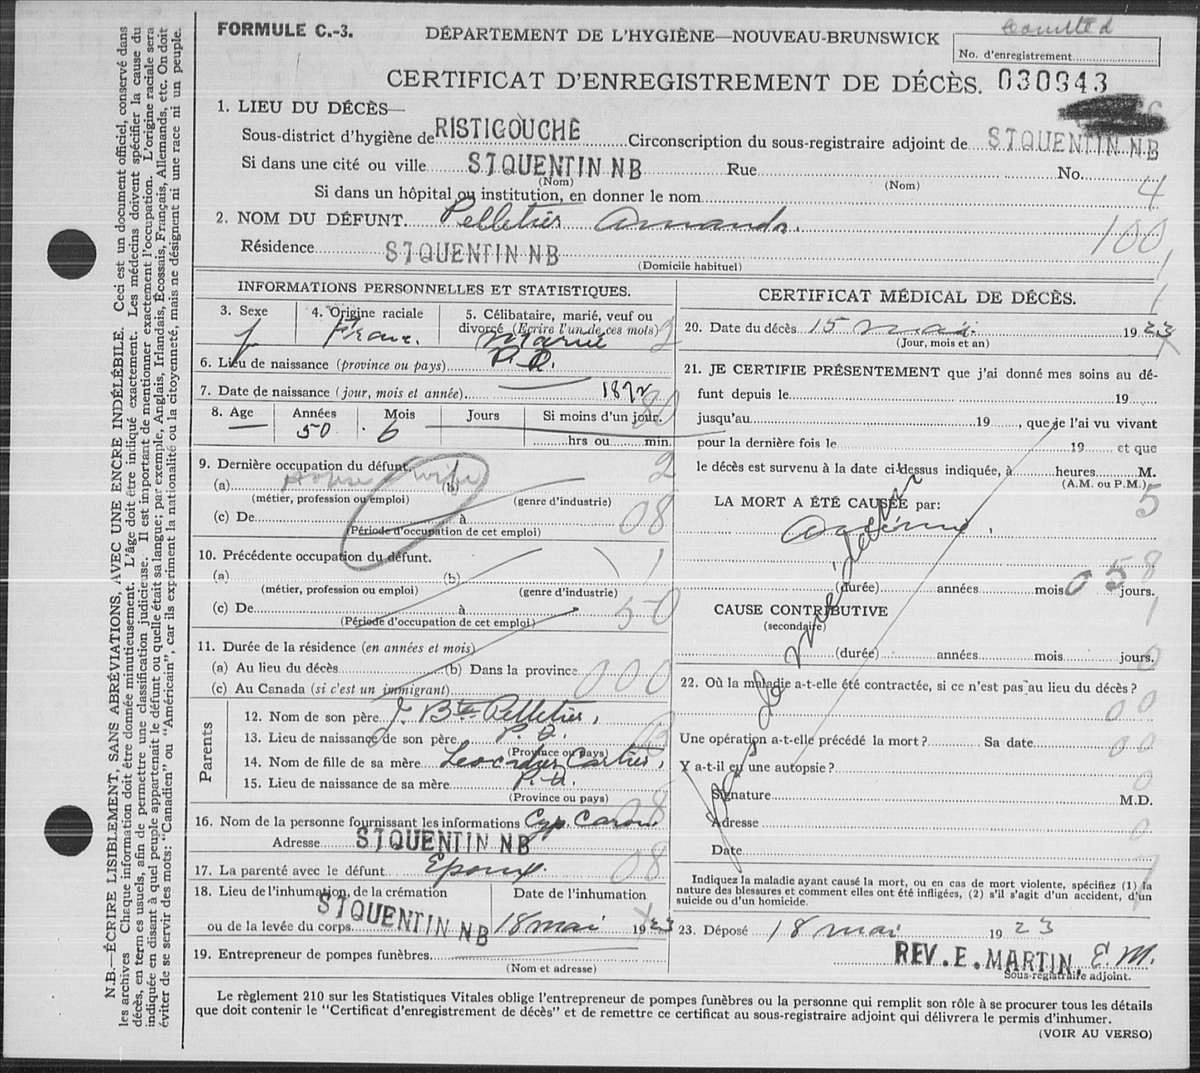 FORMULE C.-3.
DÉPARTEMENT DE L'HYGIÈNE—NOUVEAU-BRUNSWICK
No. d'enregistrement
CERTIFICAT D'ENREGISTREMENT DE DÉCÈS. 030943
1. LIEU DU DÉCÈS—
Sous-district d'hygiène de RISTIGOUCHE Circonscription du sous-registraire adjoint de ST QUENTIN N.B
Si dans une cité ou ville ST QUENTIN N B Rue No.
(Nom) (Nom)
Si dans un hôpital ou institution, en donner le nom 4
2. NOM DU DÉFUNT. Pelletier Amanda. 100
Résidence ST QUENTIN N B
(Domicile habituel)
INFORMATIONS PERSONNELLES ET STATISTIQUES.
3. Sexe 4. Origine raciale 5. Célibataire, marié, veuf ou divorcé (Ecrire l'un de ces mots)
f Franc. Marié 2
6. Lieu de naissance (province ou pays) P. Q.
7. Date de naissance (jour, mois et année) 1872
8. Age Années Mois Jours Si moins d'un jour.
50 6 hrs ou min.
9. Dernière occupation du défunt. 2
(a) House wife (b)
(métier, profession ou emploi) (genre d'industrie)
(c) De à 08
(Période d'occupation de cet emploi)
10. Précédente occupation du défunt.
(a) (b) 1
(métier, profession ou emploi) (genre d'industrie)
(c) De à 50
(Période d'occupation de cet emploi)
11. Durée de la résidence (en années et mois)
(a) Au lieu du décès (b) Dans la province 000
(c) Au Canada (si c'est un immigrant)
Parents
12. Nom de son père J. Bte Pelletier,
13. Lieu de naissance de son père P. Q.
(Province ou pays)
14. Nom de fille de sa mère Leocadie Cartier,
15. Lieu de naissance de sa mère P. Q.
(Province ou pays)
16. Nom de la personne fournissant les informations Cyp. Caron. 08
Adresse ST QUENTIN N B
17. La parenté avec le défunt Epoux. 08
18. Lieu de l'inhumation, de la crémation Date de l'inhumation
ou de la levée du corps ST QUENTIN N B 18 mai 1923
19. Entrepreneur de pompes funèbres
(Nom et adresse)
CERTIFICAT MÉDICAL DE DÉCÈS.
20. Date du décès 15 mai 1923
(Jour, mois et an)
21. JE CERTIFIE PRÉSENTEMENT que j'ai donné mes soins au dé-
funt depuis le 19
jusqu'au 19 , que je l'ai vu vivant
pour la dernière fois le 19 et que
le décès est survenu à la date ci-dessus indiquée, à heures M.
(A.M. ou P.M.)
LA MORT A ÉTÉ CAUSÉE par: 5
(durée) années mois jours.
CAUSE CONTRIBUTIVE
(secondaire)
(durée) années mois jours.
22. Où la maladie a-t-elle été contractée, si ce n'est pas au lieu du décès?
Une opération a-t-elle précédé la mort? Sa date
Y a-t-il eu une autopsie?
Signature M.D.
Adresse
Date
pas de médecin
Indiquez la maladie ayant causé la mort, ou en cas de mort violente, spécifiez (1) la
nature des blessures et comment elles ont été infligées, (2) s'il s'agit d'un accident, d'un
suicide ou d'un homicide.
23. Déposé 18 mai 1923
REV. E. MARTIN, E. M.
Sous-registraire adjoint.
Le règlement 210 sur les Statistiques Vitales oblige l'entrepreneur de pompes funèbres ou la personne qui remplit son rôle à se procurer tous les détails
que doit contenir le "Certificat d'enregistrement de décès" et de remettre ce certificat au sous-registraire adjoint qui délivrera le permis d'inhumer.
(VOIR AU VERSO)
N.B.—ÉCRIRE LISIBLEMENT, SANS ABRÉVIATIONS, AVEC UNE ENCRE INDÉLÉBILE. Ceci est un document officiel, conservé dans
les archives. Chaque information doit être donnée minutieusement. L'âge doit être indiqué exactement. Les médecins doivent spécifier la cause du
décès, en termes usuels, afin de permettre une classification judicieuse. Il est important de mentionner exactement l'occupation. L'origine raciale sera
indiquée en disant à quel peuple appartenait le défunt ou quelle était sa langue; par exemple, Anglais, Irlandais, Écossais, Français, Allemands, etc. On doit
éviter de se servir des mots: "Canadien" ou "Américain", car ils expriment la nationalité ou la citoyenneté, mais ne désignent ni une race ni un peuple.